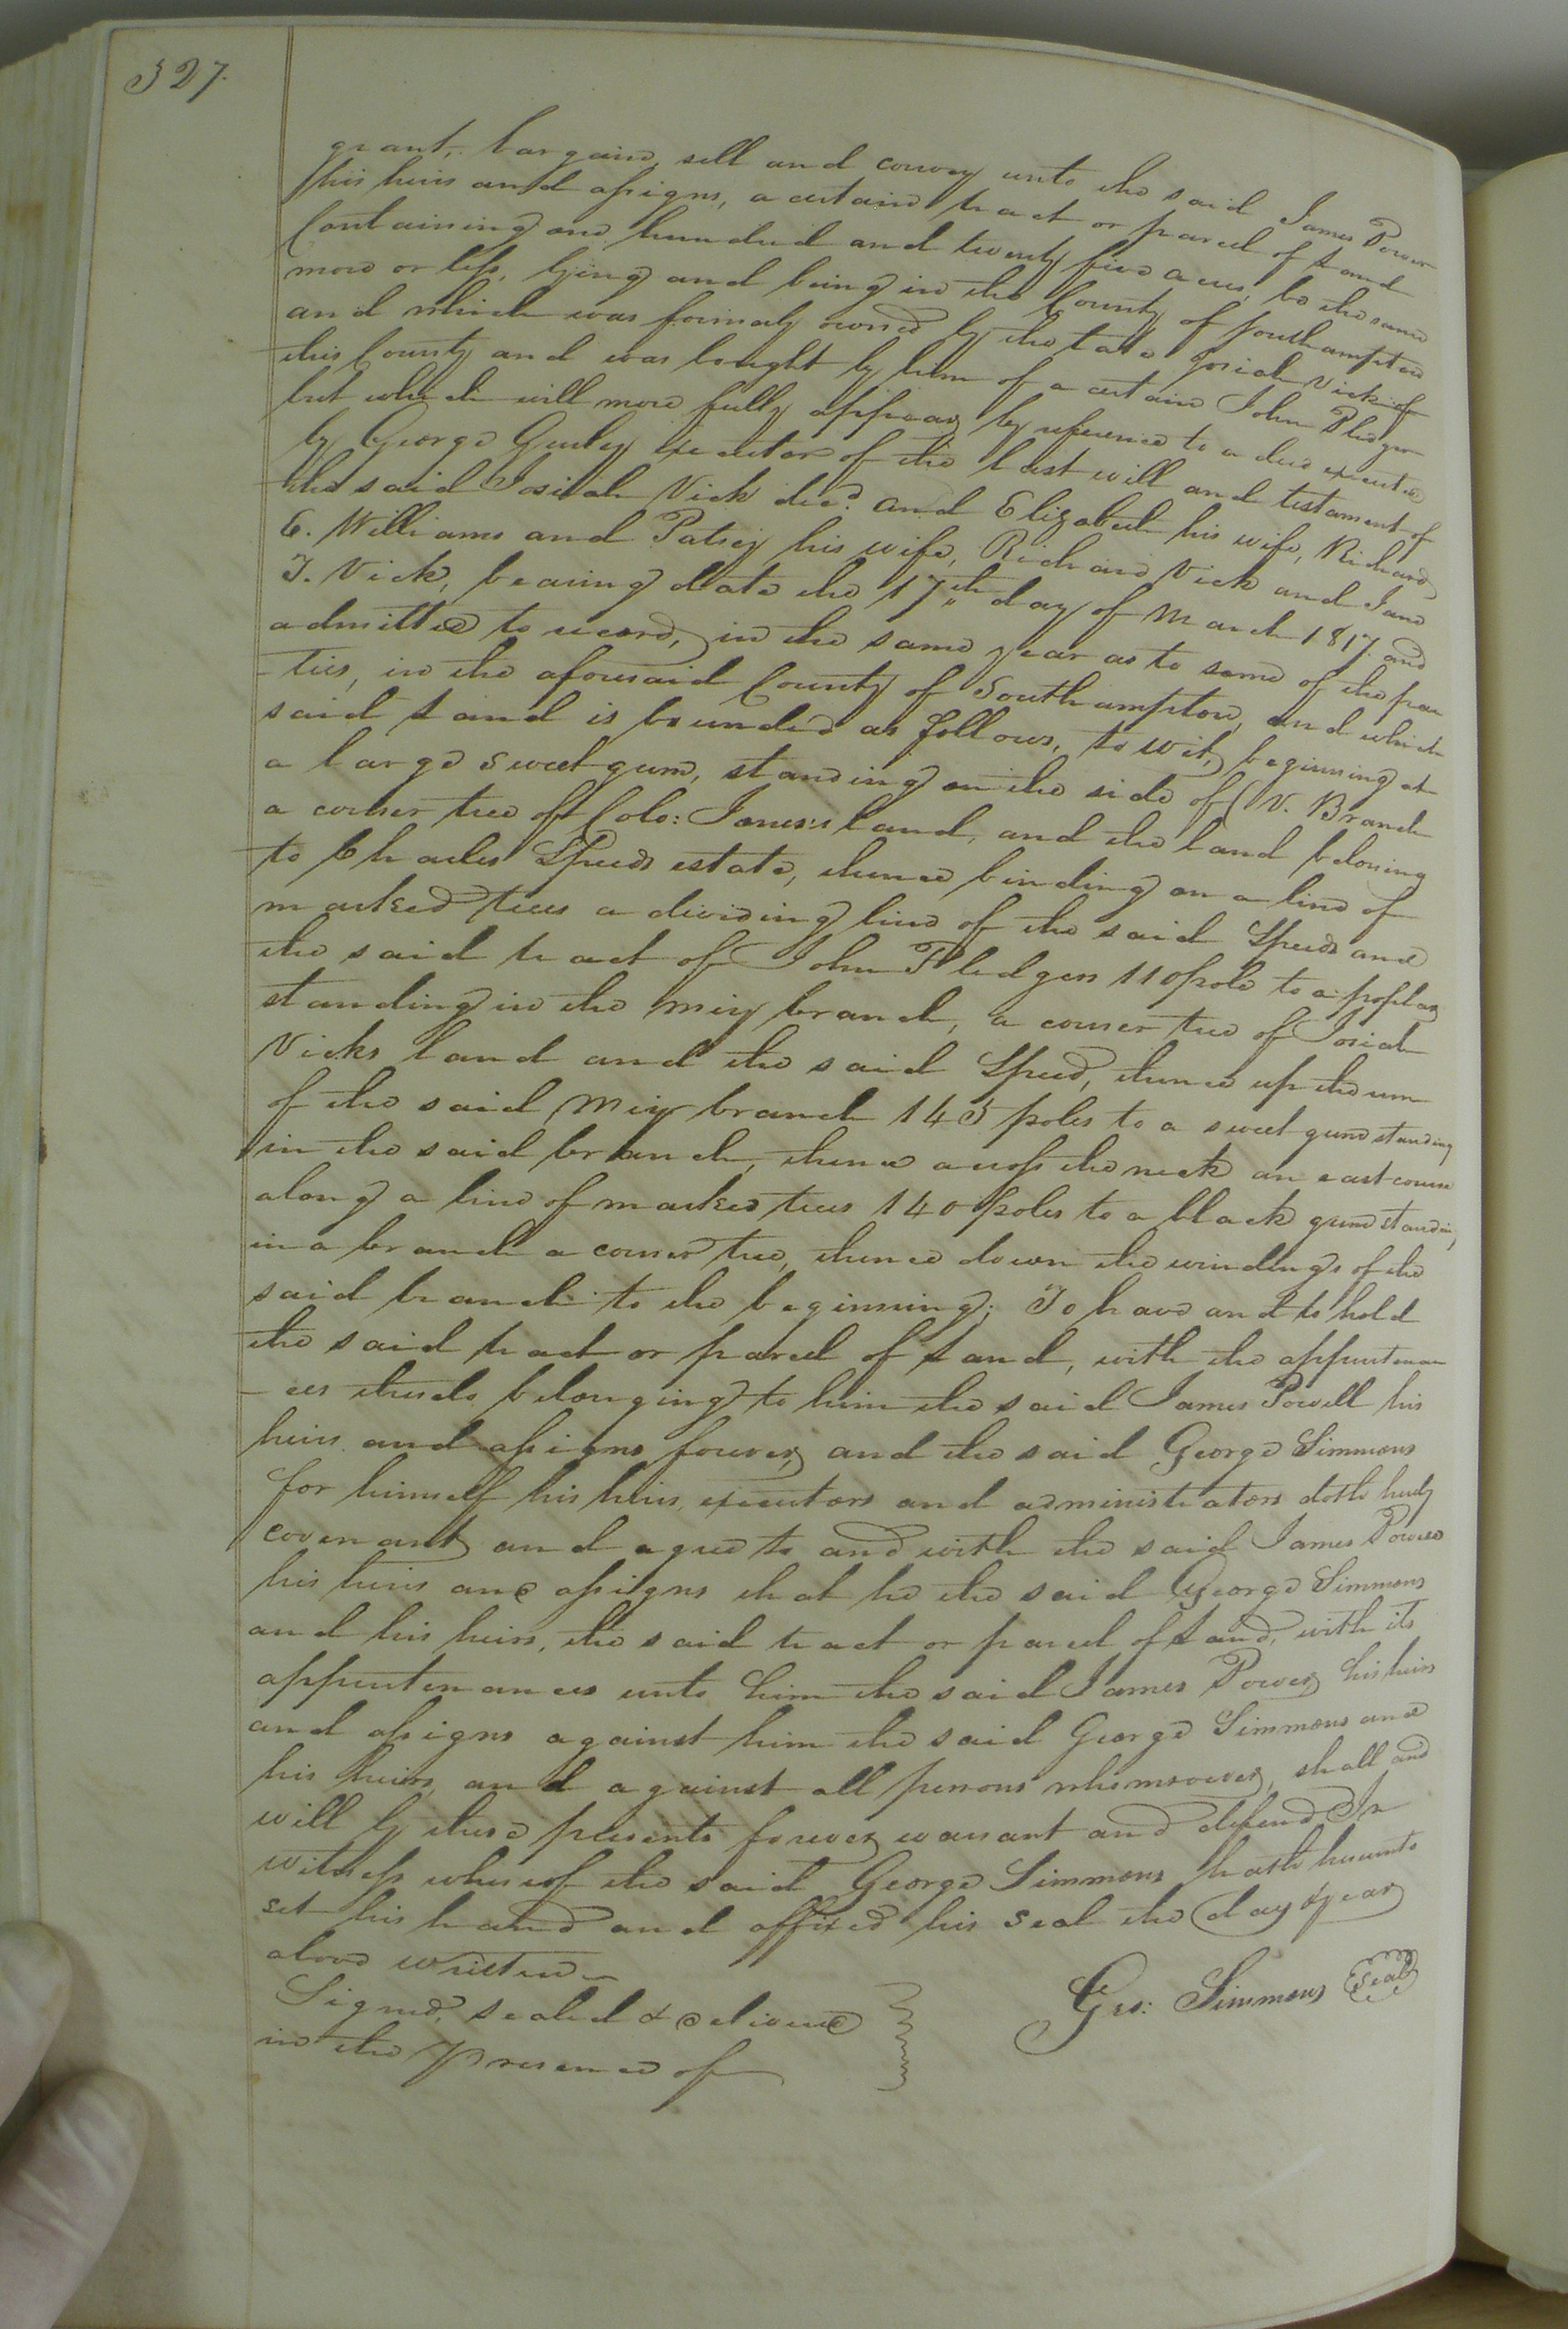 327.
grant, bargain, sell and convey unto the said James Power
his heirs and assigns, a certain tract or parcel of Land
Containing one hundred and twenty five acres, be the same
more or less, lying and being in the County of Southampton
and which was formerly owned by the late Josiah Vick of
this County and was bought by him of a certain John Pledger
but which will more fully appear by reference to a deed executed
by George Gurley Executor of the last will and testament of
the said Josiah Vick decd. and Elizabeth his wife, Richard
E. Williams and Patsey his wife, Richard Vick and Jane
T. Vick, bearing date the 17th day of March 1817. and
admitted to record, in the same year as to some of the par
-ties, in the aforesaid County of Southampton, and which
said Land is bounded as follows, to wit, beginning at
a large sweet gum, standing on the side of N. Branch
a corner tree of Colo: Jones's land, and the land beloning
to Charles Speeds estate, thence binding on a line of
marked trees a dividing line of the said Speeds and
the said tract of John Pledgers 110 pole to a poplar
standing in the miry branch, a corner tree of Josiah
Vicks land and the said Speed, thence up the
of the said Miry branch 145 poles to a sweet gum standing
in the said branch, thence across the neck an east course
along a line of marked trees 140 poles to a black gum standin,
in a branch a corner tree, thence down the windings of the
said branch to the beginning; To have and to hold
the said tract or parcel of Land, with the appurtenan
-ces thereto belonging to him the said James Powell his
heirs and assigns forever, and the said George Simmons
for himself his heirs, executors and administrators doth hereby
covenant and agree to and with the said James Power
his heirs and assigns that he the said George Simmons
and his heirs, the said tract or parcel of Land, with its
appurtenances unto him the said James Power, his heirs
and assigns against him the said George Simmons and
his heirs, and against all persons whomsoever, shall and
will by these presents forever warrant and defend In
witness whereof the said George Simmons hath hereunto
set his hand and affixed his seal the day & year
above written
Signed, sealed & delivered
in the presence of
Geo: Simmons Seal